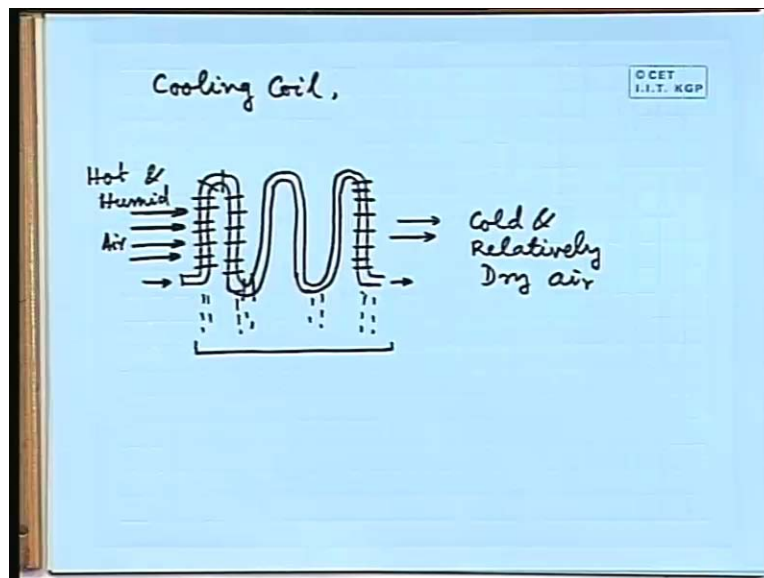 Cooling Coil,
© CET
I.I.T. KGP
Hot &
Humid
Air
Cold &
Relatively
Dry air